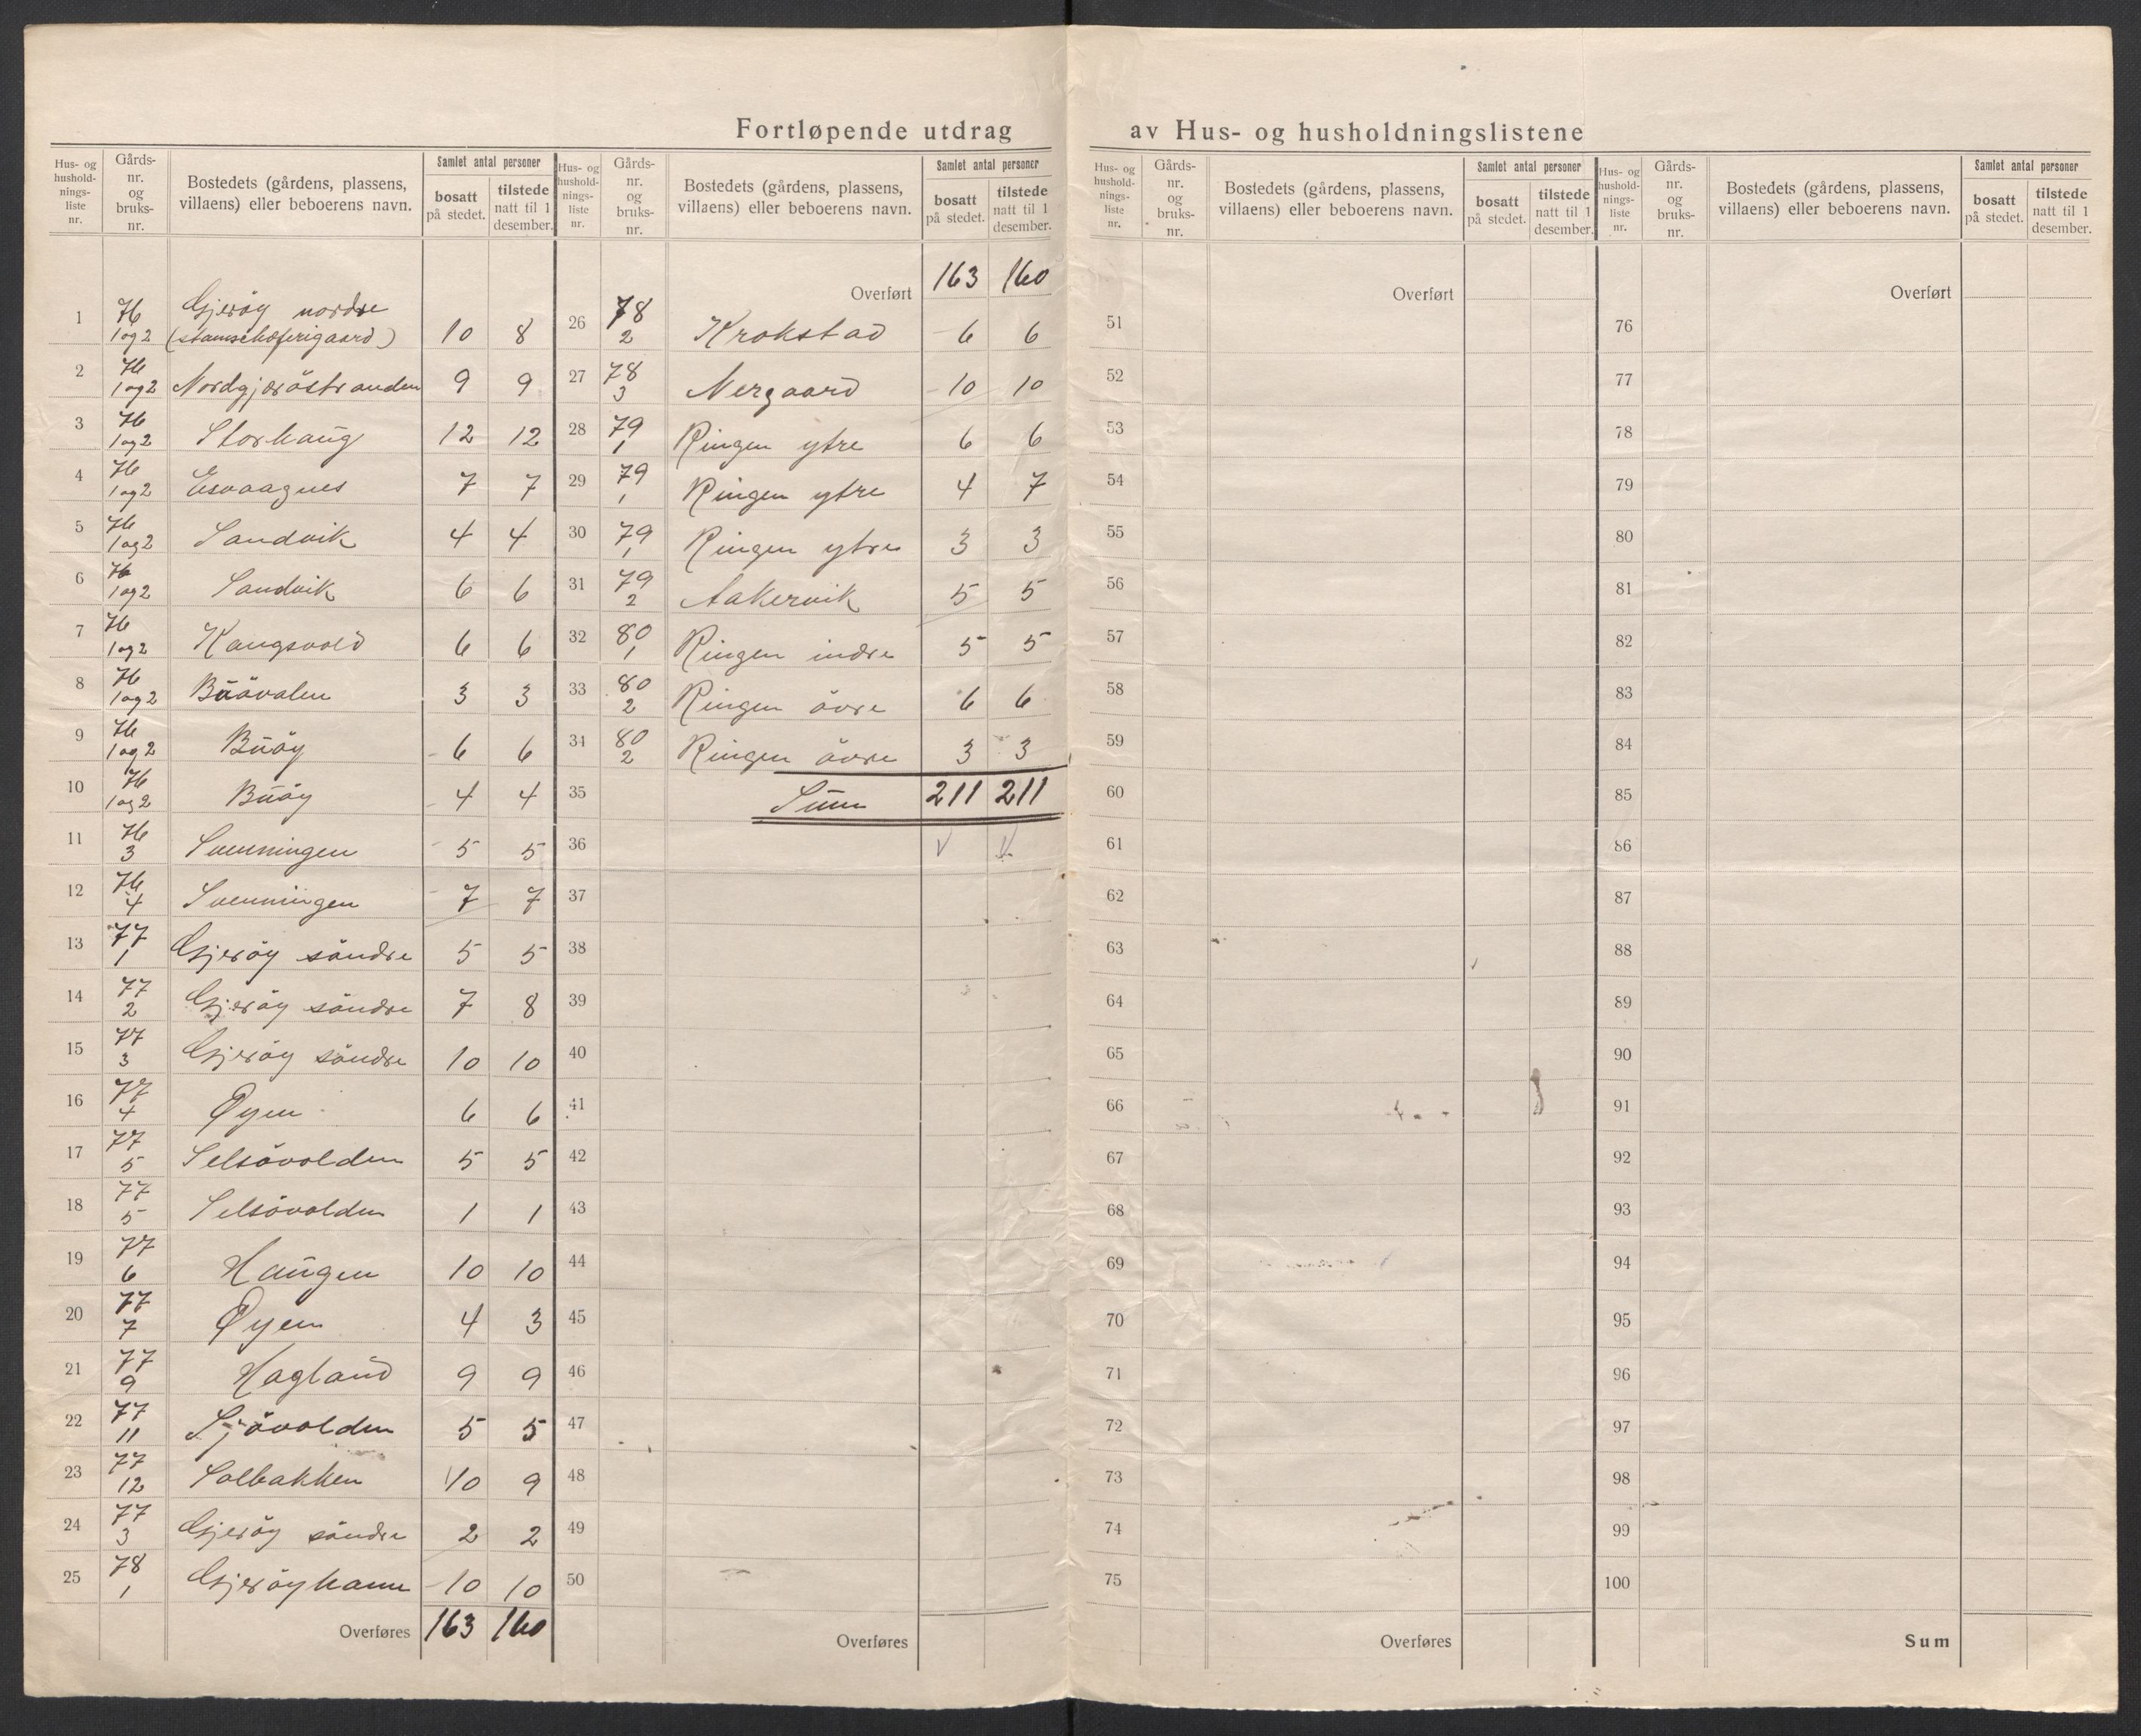 Fortløpende utdrag av Hus- og husholdningslistene
Hus- og hushold-nings-liste nr. Gårds-nr. og bruks-nr. Bostedets (gårdens, plassens, villaens) eller beboerens navn. Samlet antal personer bosatt på stedet. tilstede natt til 1 desember.
1 76 1og2 Gjerøy nordre (stamschæferigaard) 10 8
2 76 1og2 Nordgjæröstranden 9 9
3 76 1og2 Storhaug 12 12
4 76 1og2 Esvaagnes 7 7
5 76 1og2 Sandvik 4 4
6 76 1og2 Sandvik 6 6
7 76 1og2 Kangsvold 6 6
8 76 1og2 Buövalen 3 3
9 76 1og2 Buöy 6 6
10 76 1og2 Buöy 4 4
11 76 3 Svenningen 5 5
12 76 4 Svenningen 7 7
13 77 1 Gjeröy söndre 5 5
14 77 2 Gjeröy söndre 7 8
15 77 3 Gjeröy söndre 10 10
16 77 4 Øyen 6 6
17 77 5 Selsövolden 5 5
18 77 5 Selsövolden 1 1
19 77 6 Haugen 10 10
20 77 7 Øyen 4 3
21 77 9 Hagland 9 9
22 77 11 Sjövolden 5 5
23 77 12 Solbakken 10 9
24 77 3 Gjeröy söndre 2 2
25 78 1 Gjeröyhamn 10 10
Overføres 163 160
Hus- og hushold-nings-liste nr. Gårds-nr. og bruks-nr. Bostedets (gårdens, plassens, villaens) eller beboerens navn. Samlet antal personer bosatt på stedet. tilstede natt til 1 desember.
Overført 163 160
26 78 2 Krokstad 6 6
27 78 3 Nergaard 10 10
28 79 1 Ringen ytre 6 6
29 79 1 Ringen ytre 4 7
30 79 1 Ringen ytre 3 3
31 79 2 Aakervik 5 5
32 80 1 Ringen indre 5 5
33 80 2 Ringen övre 6 6
34 80 2 Ringen övre 3 3
35 Sum 211 211
36
37
38
39
40
41
42
43
44
45
46
47
48
49
50
Overføres
Hus- og hushold-nings-liste nr. Gårds-nr. og bruks-nr. Bostedets (gårdens, plassens, villaens) eller beboerens navn. Samlet antal personer bosatt på stedet. tilstede natt til 1 desember.
Overført
51
52
53
54
55
56
57
58
59
60
61
62
63
64
65
66
67
68
69
70
71
72
73
74
75
Overføres
Hus- og hushold-nings-liste nr. Gårds-nr. og bruks-nr. Bostedets (gårdens, plassens, villaens) eller beboerens navn. Samlet antal personer bosatt på stedet. tilstede natt til 1 desember.
Overført
76
77
78
79
80
81
82
83
84
85
86
87
88
89
90
91
92
93
94
95
96
97
98
99
100
Sum